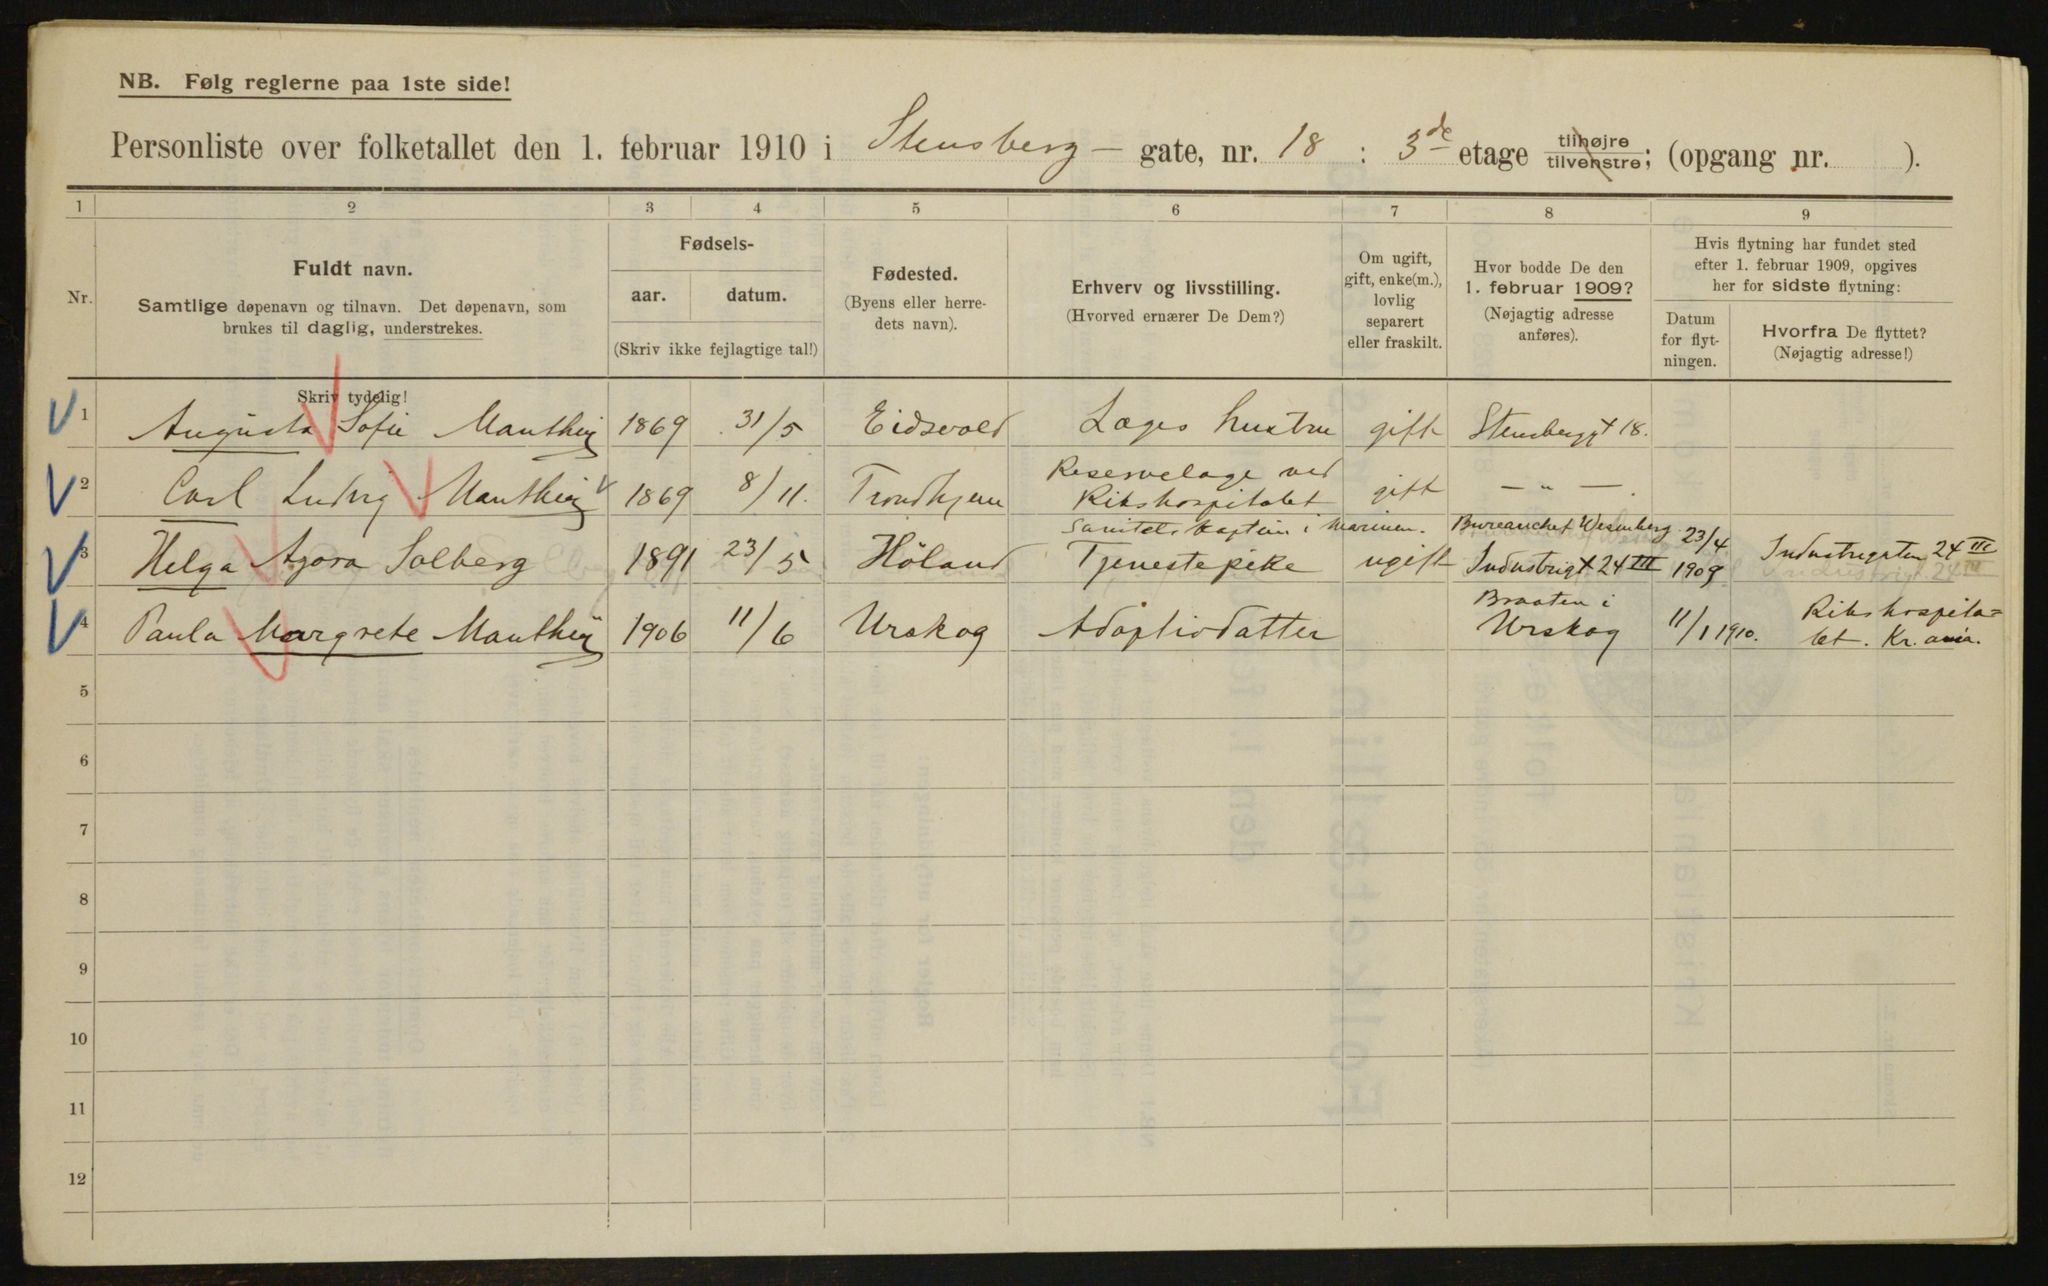 NB. Følg reglerne paa 1ste side!
Personliste over folketallet den 1. februar 1910 i Stensberg- gate, nr. 18 : 3de etage tilhøjre tilvenstre; (opgang nr. ).
1 2 3 4 5 6 7 8 9
Nr.
Fuldt navn.
Samtlige døpenavn og tilnavn. Det døpenavn, som
brukes til daglig, understrekes.
Skriv tydelig!
Fødsels-
aar. datum.
(Skriv ikke fejlagtige tal!)
Fødested.
(Byens eller herre-
dets navn).
Erhverv og livsstilling.
(Hvorved ernærer De Dem?)
Om ugift,
gift, enke(m.),
lovlig
separert
eller fraskilt.
Hvor bodde De den
1. februar 1909?
(Nøjagtig adresse
anføres).
Hvis flytning har fundet sted
efter 1. februar 1909, opgives
her for sidste flytning:
Datum
for flyt-
ningen.
Hvorfra De flyttet?
(Nøjagtig adresse!)
1 Augusta Sofie Manthey 1869 31/5 Eidsvold Læges hustru gift Stensberggt 18.
2 Carl Ludvig Manthey 1869 8/11. Trondhjem Reservelæge ved
Rikshospitalet gift — " —.
Sanitetskaptein i Marinen.
3 Helga Agora Solberg 1891 23/5 Höland Tjenestepike ugift Bureauchef Wesenberg
Industrigt 24 III 23/4
1909 Industrigaten 24 III
4 Paula Margrete Manthey 1906 11/6 Urskog Adoptivdatter Braaten i
Urskog 11/1 1910. Rikshospita=
let. Kr.ania.
5
6
7
8
9
10
11
12